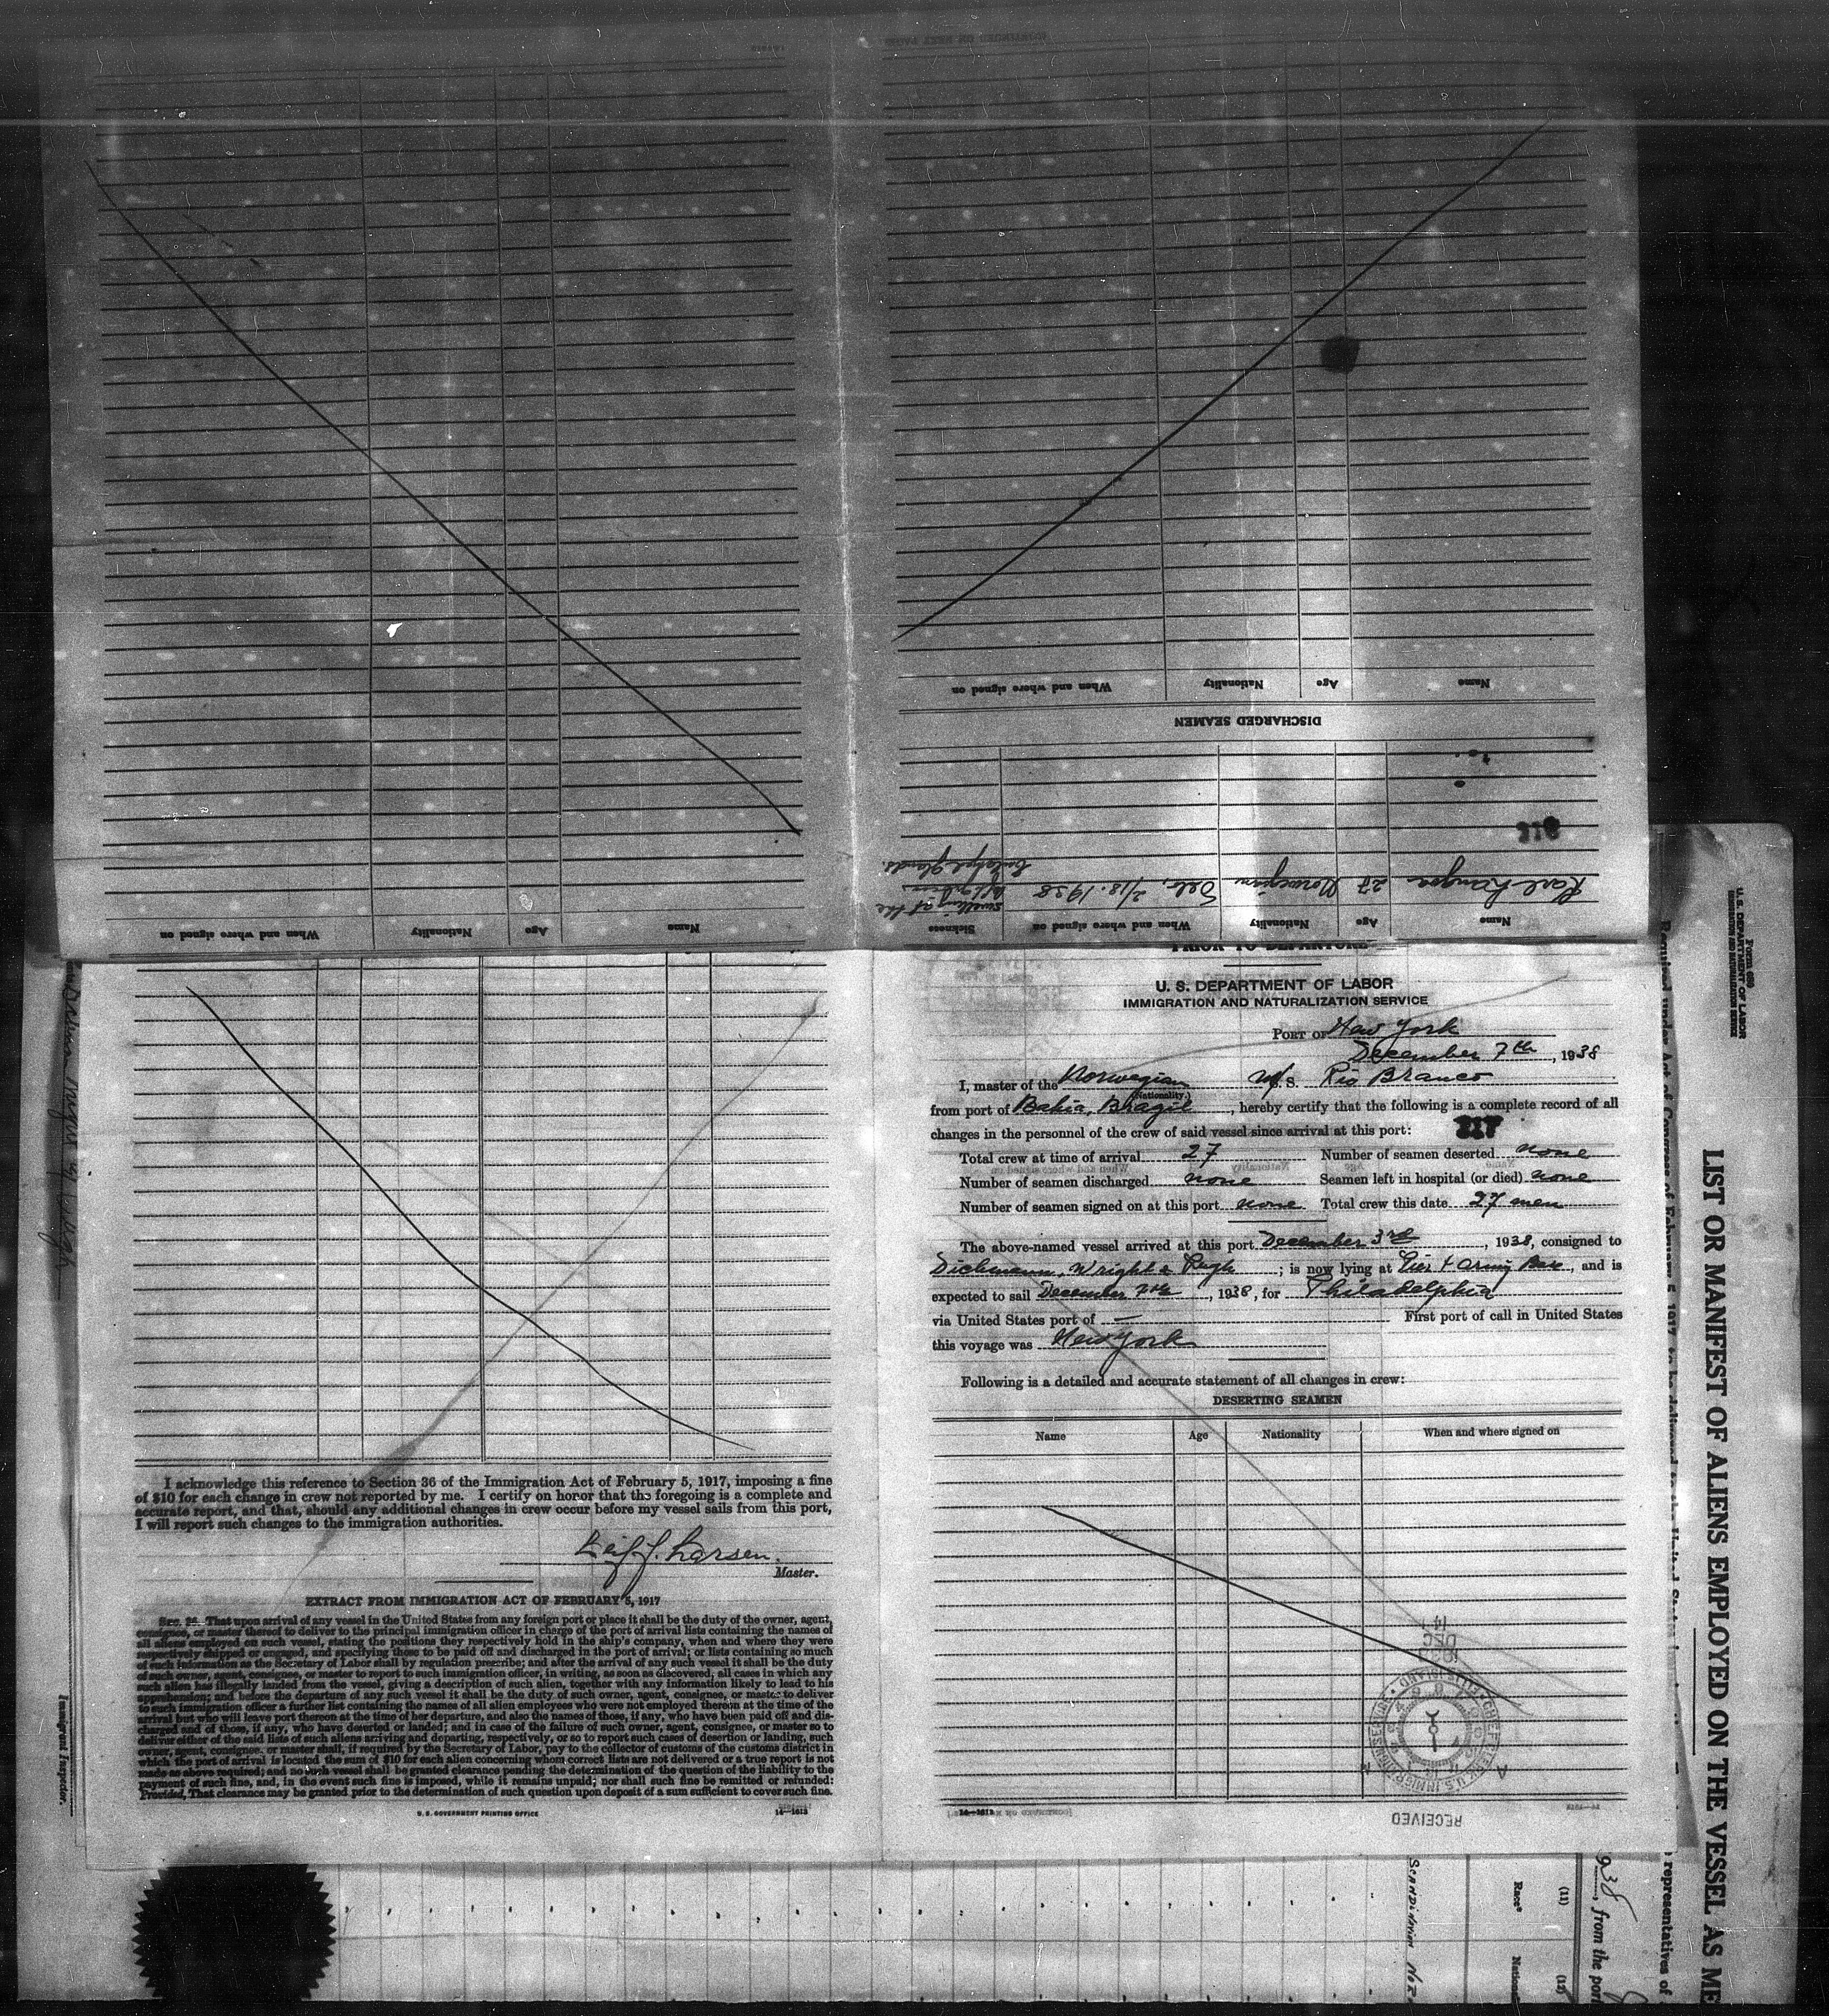 When and where signed on
Nationality
Age
Name
DISCHARGED SEAMEN
Name
Age
Nationality
When and where signed on
Name
Age
Nationality
When and where signed on
Sickness
Karl
27
Norwegian
Oslo, 2/18.1938
swelling at the
glands.
U. S. DEPARTMENT OF LABOR
IMMIGRATION AND NATURALIZATION SERVICE
PORT OF New York
December 7th, 1938
I, master of the Norwegian M/S. Rio Branco
(Nationality.)
from port of Bahia, Brazil, hereby certify that the following is a complete record of all
changes in the personnel of the crew of said vessel since arrival at this port:
317
Total crew at time of arrival 27 Number of seamen deserted none
Number of seamen discharged none Seamen left in hospital (or died) none
Number of seamen signed on at this port none Total crew this date 27 men
The above-named vessel arrived at this port December 3rd, 1938, consigned to
Dichmann, Wright & Pugh; is now lying at Pier 4 Army Base, and is
expected to sail December 7th, 1938, for Philadelphia
via United States port of — First port of call in United States
this voyage was New York
Following is a detailed and accurate statement of all changes in crew:
DESERTING SEAMEN
Name Age Nationality When and where signed on
14
DEC
RECEIVED
I acknowledge this reference to Section 36 of the Immigration Act of February 5, 1917, imposing a fine
of $10 for each change in crew not reported by me. I certify on honor that the foregoing is a complete and
accurate report, and that, should any additional changes in crew occur before my vessel sails from this port,
I will report such changes to the immigration authorities.
Leif J. Larsen.
Master.
EXTRACT FROM IMMIGRATION ACT OF FEBRUARY 5, 1917
SEC. 36. That upon arrival of any vessel in the United States from any foreign port or place it shall be the duty of the owner, agent,
consignee, or master thereof to deliver to the principal immigration officer in charge of the port of arrival lists containing the names of
all aliens employed on such vessel, stating the positions they respectively hold in the ship's company, when and where they were
respectively shipped or engaged, and specifying those to be paid off and discharged in the port of arrival; or lists containing so much
of such information as the Secretary of Labor shall by regulation prescribe; and after the arrival of any such vessel it shall be the duty
of such owner, agent, consignee, or master to report to such immigration officer, in writing, as soon as discovered, all cases in which any
such alien has illegally landed from the vessel, giving a description of such alien, together with any information likely to lead to his
apprehension; and before the departure of any such vessel it shall be the duty of such owner, agent, consignee, or master to deliver
to such immigration officer a further list containing the names of all alien employees who were not employed thereon at the time of the
arrival but who will leave port thereon at the time of her departure, and also the names of those, if any, who have been paid off and dis-
charged and of those, if any, who have deserted or landed; and in case of the failure of such owner, agent, consignee, or master so to
deliver either of the said lists of such aliens arriving and departing, respectively, or so to report such cases of desertion or landing, such
owner, agent, consignee, or master shall, if required by the Secretary of Labor, pay to the collector of customs of the customs district in
which the port of arrival is located the sum of $10 for each alien concerning whom correct lists are not delivered or a true report is not
made as above required; and no such vessel shall be granted clearance pending the determination of the question of the liability to the
payment of such fine, and, in the event such fine is imposed, while it remains unpaid; nor shall such fine be remitted or refunded:
Provided, That clearance may be granted prior to the determination of such question upon deposit of a sum sufficient to cover such fine.
U. S. GOVERNMENT PRINTING OFFICE 14—1613
Immigrant Inspector.
Form 689
U. S. DEPARTMENT OF LABOR
IMMIGRATION AND NATURALIZATION SERVICE
LIST OR MANIFEST OF ALIENS EMPLOYED ON THE VESSEL AS ME
representatives of
938, from the port
(11)
Race*
SCANDINAVIAN
(12)
Nation
NOR